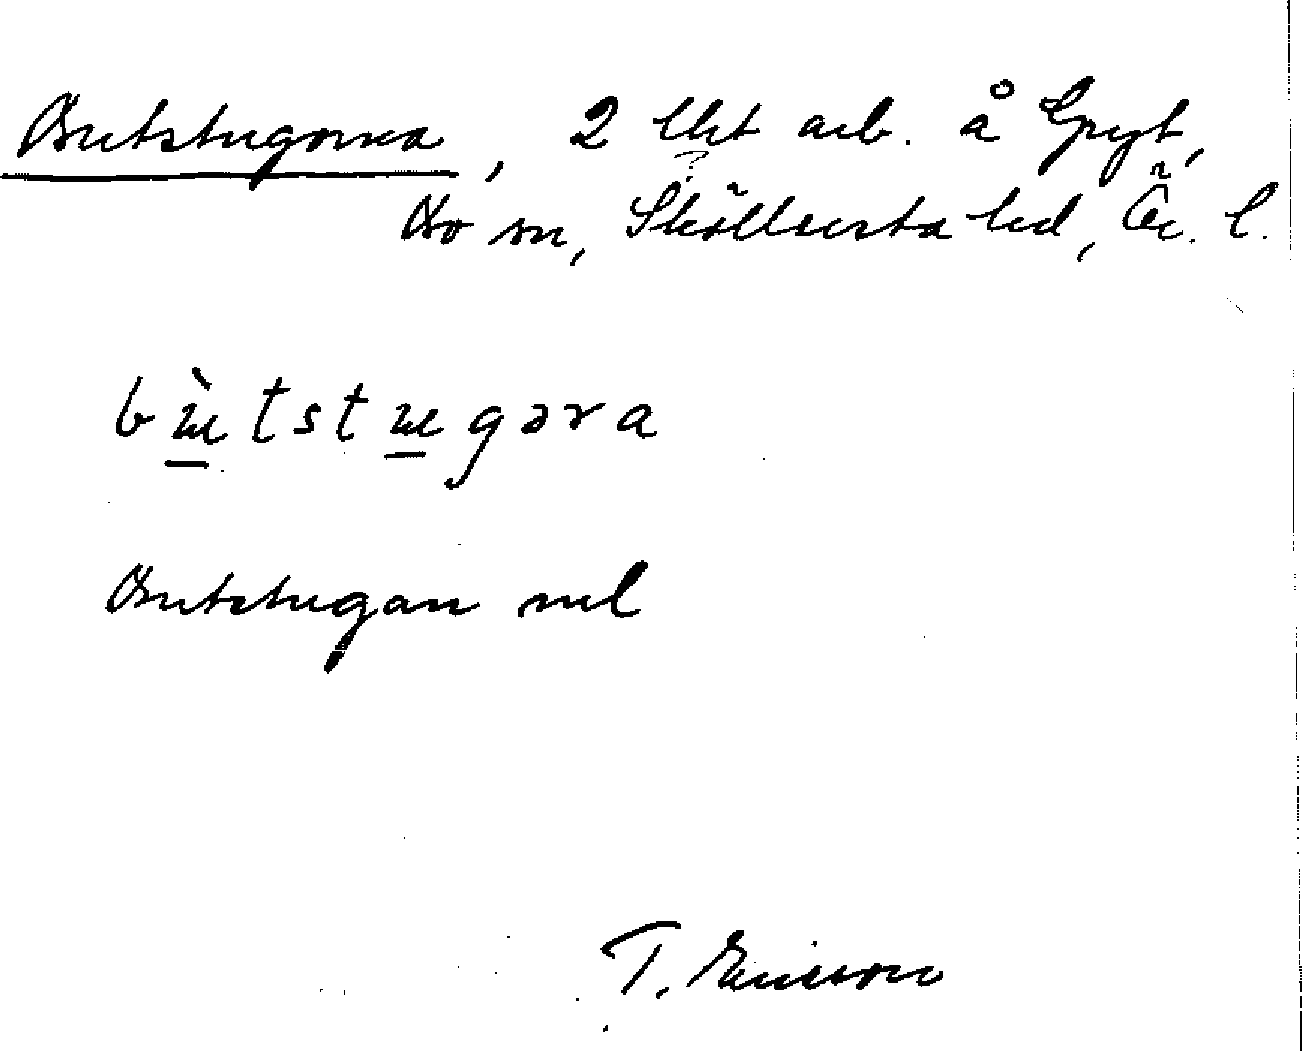 Butstugorna, 2 lht arb. å Gryt,
?
Bo sn, Sköllersta hd, Ör. l.
bù̲tstu̲gəra
Butstugan
T. Ericsson